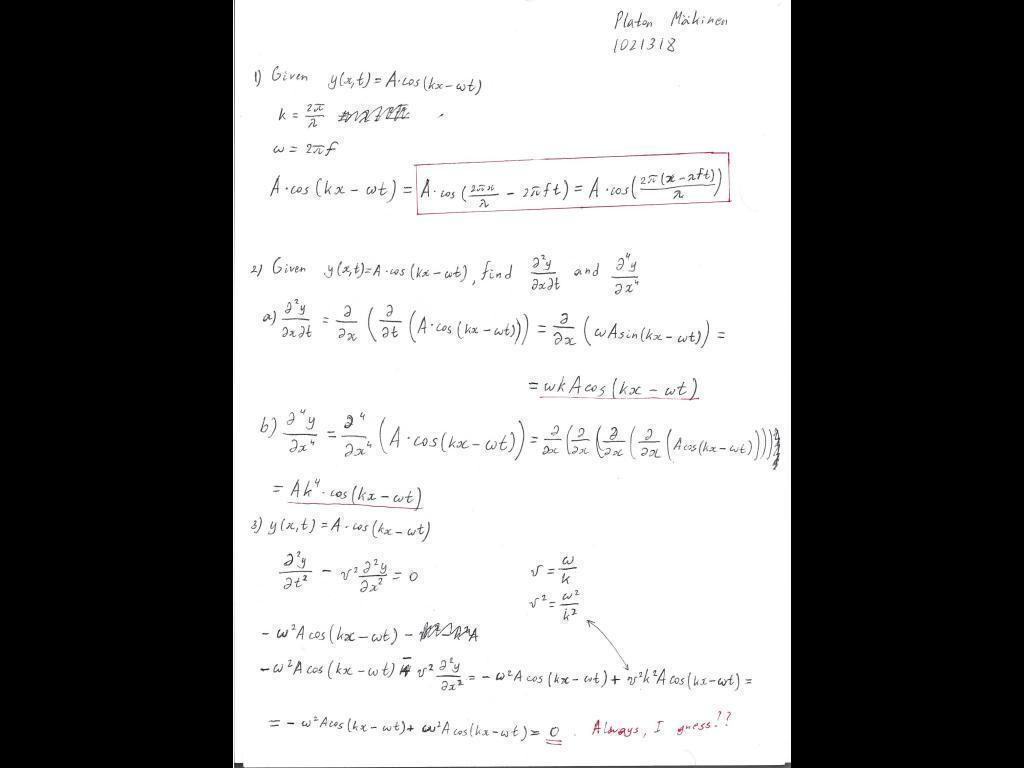 Platon Mäkinen
1021318
1) Given y(x,t) = A·cos(kx − ωt)
k = 2π/λ
ω = 2πf
A·cos(kx − ωt) = A·cos(2πx/λ − 2πft) = A·cos(2π(x − λft)/λ)
2) Given y(x,t) = A·cos(kx − ωt), find ∂²y/∂x∂t and ∂⁴y/∂x⁴
a) ∂²y/∂x∂t = ∂/∂x (∂/∂t (A·cos(kx − ωt))) = ∂/∂x (ωA sin(kx − ωt)) =
= ωkA cos(kx − ωt)
b) ∂⁴y/∂x⁴ = ∂⁴/∂x⁴ (A·cos(kx − ωt)) = ∂/∂x (∂/∂x (∂/∂x (∂/∂x (A cos(kx − ωt)))))
= Ak⁴·cos(kx − ωt)
3) y(x,t) = A·cos(kx − ωt)
∂²y/∂t² − v² ∂²y/∂x² = 0 v = ω/k
v² = ω²/k²
− ω²A cos(kx − ωt) −
− ω²A cos(kx − ωt) − v² ∂²y/∂x² = − ω²A cos(kx − ωt) + v²k²A cos(kx − ωt) =
= − ω²A cos(kx − ωt) + ω²A cos(kx − ωt) = 0. Always, I guess??